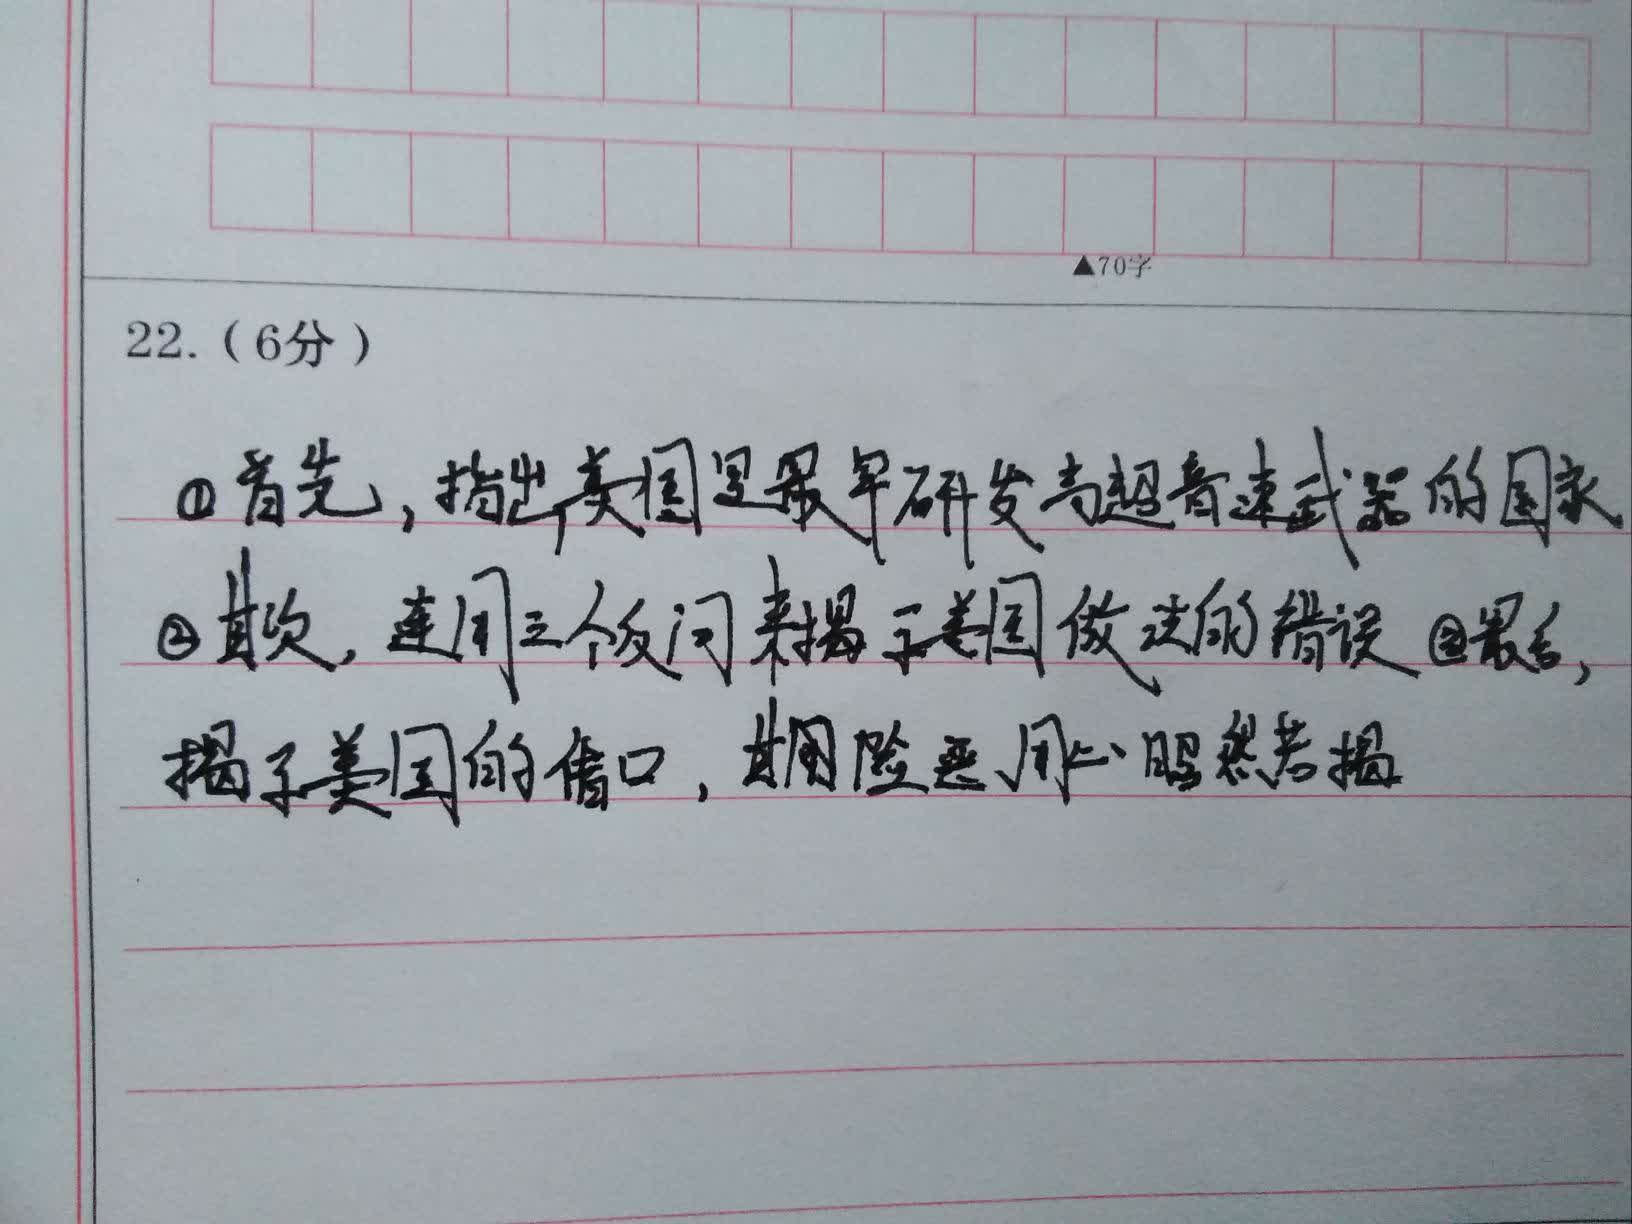 ▲70字
22.（6分）
①首先，指出美国是最早研发高超音速武器的国家
②其次，连用三个反问来揭示美国做法的错误 ③最后，
揭示美国的借口，其用险恶用心昭然若揭